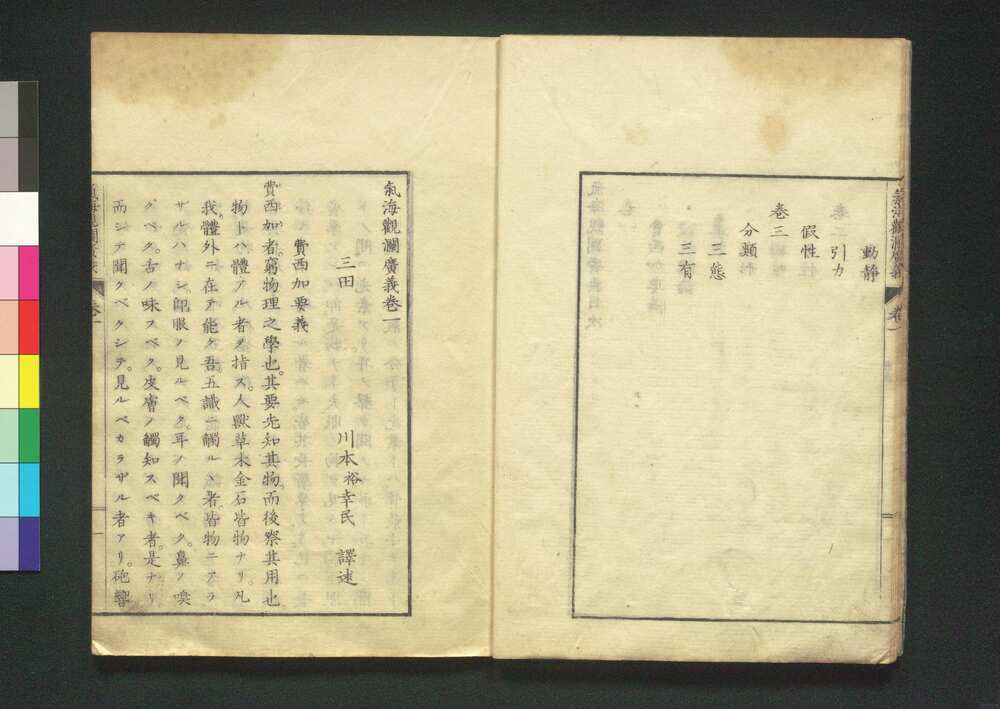 動靜
引力
假性
卷三
分類
三態
三有
氣海觀瀾廣義
卷一
氣海觀瀾廣義卷一
三田 川本裕幸民 譯述
費西加要義
費西加者。窮物理之學也。其要先知其物。而後察其用也
物トハ。體アル者ヲ指ス。人獸草木金石皆物ナリ。凡
我體外ニ在テ能ク吾五識ニ觸ルヽ者。皆物ニアラ
ザルハナシ。即眼ノ見ルベク。耳ノ聞クベク。鼻ノ嗅
グベク。舌ノ味スベク。皮膚ノ觸知スベキ者。是ナリ
而シテ聞クベクシテ。見ルベカラザル者アリ。砲響
卷一
一